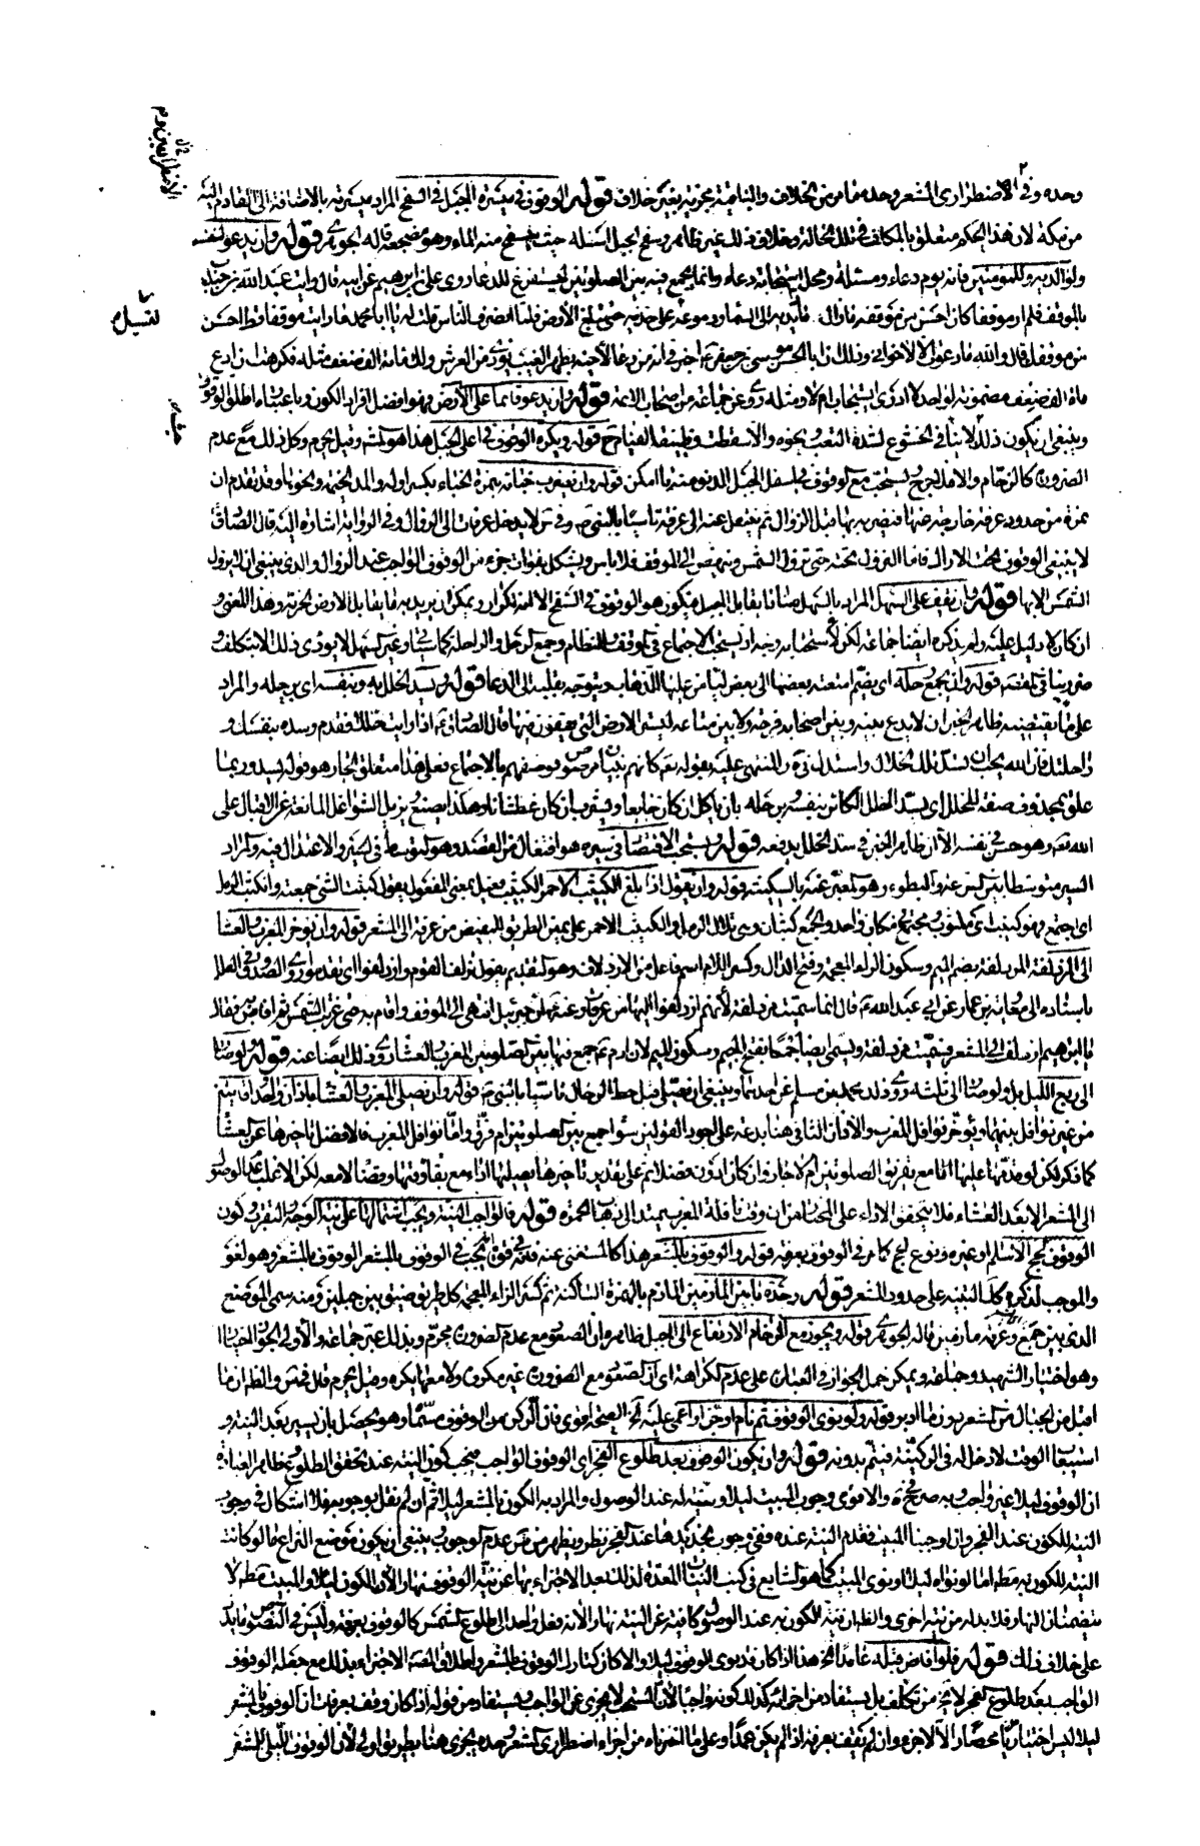 وحده وفي الاضطراري المشعر وحده ما مر من الخلاف والثانية مجزية بغير خلاف قوله الوقوف في ميسرة الجبل في السفح المراد ميسرته بالاضافة الى القادم اليه
من مكة لان هذا الحكم متعلق بالمكلف في تلك الحالة وخلاف ذلك غير ظاهر وسفح الجبل اسفله حيث يسفح منه الماء وهو مضجعه قاله الجوهري قوله وان يدعو لنفسه
ولوالديه وللمؤمنين فانه يوم دعاء ومسئلة ومحل استجابة دعاء وانما يجمع فيه بين الصلوتين ليتفرغ للدعاء روى علي بن ابرهيم عن ابيه قال رايت عبد الله بن جندب
بالموقف فلم ار موقفا كان احسن من موقفه ما زال مادا يديه الى السماء ودموعه على خديه حتى تبلغ الأرض فلما انصرف الناس قلت له يا ابا محمد ما رايت موقفا قط احسن
من موقفك قال والله ما دعوت الا لاخواني وذلك ان ابا الحسن موسى بن جعفر ع اخبرني انه من دعا لاخيه بظهر الغيب نودي من العرش ولك مائة الف ضعف مثله فكرهت ان ادع
مائة الف ضعف مضمونة لواحد لا ادري يستجاب ام لا ومثله روى عن جماعة من اصحاب الائمة قوله وان يدعو قائما على الأرض فهو افضل افراد الكون وباعتباره اطلق الوقوف
وينبغي ان يكون ذلك لا ينافي الخشوع لشدة التعب ونحوه والا سقطت وظيفة القيام ح قوله ويكره الوقوف في اعلى الجبل هذا هو المشهور وقيل يحرم وكل ذلك مع عدم
الضرورة كالزحام والا فلا حرج يستحب مع الوقوف باسفل الجبل الدنو منه ما امكن قوله وان يضرب خباءه بنمرة الخباء بكسر اوله والمد الخيمة ونحوها وقد تقدم ان
نمرة من حدود عرفة خارجة عنها فيضربه بها قبل الزوال ثم ينتقل عنه الى عرفة تاسيا بالنبي ص وفي لا يدخل عرفات الى الزوال وفي الرواية اشارة اليه قال الصادق
لا ينبغي الوقوف تحت الاراك فاما النزول تحته حتى تزول الشمس وينهض الى الموقف فلا باس ويشكل بفوات جزء من الوقوف الواجب عند الزوال والذي ينبغي ان لا يزول
الشمس الا بها قوله وان يقف على السهل المراد بالسهل هنا ما يقابل الجبل فيكون هو الوقوف في السفح الا انه تكرار ويمكن ان يريد به ما يقابل الارض الحزنة وهذا المعنى و
ان كان لا دليل عليه ولم يذكره ايضا جماعة لكن لاستحبابه وجه اذ يستحب الاجتماع في الموقف والتظام وجمع الرحل والراحلة كما سياتي وغير السهل لا يؤدي ذلك الا بتكلف
قوله وان يجمع رحله اي يضم امتعته بعضها الى بعض ليامن عليها الذهاب ويتوجه بقلبه الى الدعاء قوله ويسد الخلل به وبنفسه اي برحله والمراد
على ما يقتضيه ظاهر الخبر ان لا يدع بينه وبين اصحابه فرجة ولا بين متاعه ليستر الارض التي يقفون فيها قال الصادق ع اذا رايت خللا فتقدم وسده بنفسك و
راحلتك فان الله يحب ان تسد تلك الخلال واستدل عليه بقوله تع كانهم بنيان مرصوص فوصفهم بالاجتماع فعلى هذا متعلق الجار هو قوله يسد وربما
علق بمحذوف صفة للخلل اي يسد الخلل الكائن بنفسه برحله بان ياكل ان كان جايعا ويشرب ان كان عطشانا وهكذا يصنع يزيل الشواغل المانعة عن الاقبال على
الله تع وهو حسن في نفسه الا ان ظاهر الخبر في سد الخلل يدفعه قوله ويستحب الاقتصاد في سيره هو افتعال من القصد وهو التوسط في السير والاعتدال فيه والمراد
السير متوسطا بين السرعة والبطوء وهو المعبر عنه بالسكينة قوله وان يقول اذا بلغ الكثيب الاحمر الكثيب فعيل بمعنى المفعول يقول كثبت الشئ جمعته وانكثب الرمل
اي اجتمع فهو كثيب اي مكثوب مجتمع في مكان واحد والجمع كثبان وهي تلال الرمل والكثيب الاحمر على يمين الطريق للمفيض من عرفة الى المشعر قوله وان يؤخر المغرب والعشاء
الى المزدلفة المزدلفة بضم الميم وسكون الزاء المعجمة وفتح الدال وكسر اللام اسم فاعل من الازدلاف وهو التقدم يقول تزلف القوم وازدلفوا اي تقدموا روى الصدوق في العلل
باسناده الى معاوية بن عمار عن ابي عبد الله ع قال انما سميت مزدلفة لأنهم ازدلفوا اليها من عرفات وعنه ع ان جبرئيل انتهى الى الموقف واقام به حتى غربت الشمس ثم افاض به فقال
يا ابرهيم ازدلف الى المشعر فسميت مزدلفة وتسمى ايضا جمعا بفتح الجيم وسكون الميم لان ادم ع جمع فيها بين الصلوتين المغرب والعشاء روى ذلك ايضا عنه قوله ولو صار
الى ربع الليل بل ولو صار الى ثلثه روى ذلك محمد بن مسلم عن احدهما وينبغي ان يصلي قبل حط الرحال تاسيا بالنبي ص قوله وان يصلي المغرب والعشاء باذان واحد واقامتين
من غير نوافل بينهما ويؤخر نوافل المغرب والاذان الثاني هنا بدعة على اجود القولين سواء جمع بين الصلوتين ام فرق واما نوافل المغرب فالافضل تاخيرها عن العشاء
كما ذكر لكن لو قدمها عليها مع تفريق الصلوتين ام لا جاز وان كان ادون فضلا
الى المشعر الا بعد العشاء فلا يتحقق الاداء على المختار من ان وقت نافلة المغرب يمتد الى ذهاب الحمرة قوله فالواجب النية ويجب اشتمالها على نية الوجه والتقرب وكون
الوقوف لحج الاسلام او غيره ونوع الحج كما مر في الوقوف بعرفة قوله والوقوف بالمشعر هذا كالمستغنى عنه
والموجب لذكره كله التنبيه على حدود المشعر قوله وحده ما بين المأزمين المأزم بالهمزة الساكنة ثم كسر الزاء المعجمة كل طريق ضيق بين جبلين ومنه سمي الموضع
الذي بين جمع وعرفة مازمين قاله الجوهري قوله ويجوز مع الزحام الارتفاع الى الجبل ظاهره ان الصعود مع عدم الضرورة محرم وبذلك عبر جماعة والأولى الجواز اختيارا
وهو اختيار الشهيد وجماعة ويمكن حمل الجواز في العبارة على عدم الكراهة اي ان الصعود مع الضرورة غير مكروه ولا معها يكره وقيل يحرم والظاهر ان ما
اقبل من الجبال من المشعر دون ما ادبر قوله ولو نوى الوقوف ثم نام او جن او اغمي عليه صح الصحة اقوى فان الركن من الوقوف مسماه وهو يحصل بان يسير بعد النية و
استيعاب الوقت لا دخل له في الركنية فيتم بدونه قوله وان يكون الوقوف بعد طلوع الفجر اي الوقوف الواجب فيجب كون النية عند تحقق الطلوع وظاهر العبارة
ان الوقوف ليلا غير واجب وبه صرح والاقوى وجوب المبيت ليلا والنية له عند الوصول والمراد به الكون بالمشعر ليلا ثم ان لم نقل بوجوبه فلا اشكال في وجوب
النية للكون عند الفجر وان اوجبنا المبيت فقدم النية عنده ففي وجوب تجديدها عند الفجر نظر ويظهر من عدم الوجوب وينبغي ان يكون موضع النزاع ما لو كانت
النية للكون به مطلقا اما لو نواه ليلا او نوى المبيت كما هو الشايع في كتب النيات المعدة لذلك فبعد الاجتزاء بها عن نية الوقوف نهارا لأن الكون ليلا والمبيت مطلقا لا
يتضمنان النهار فلا بد له من نية اخرى والظاهر ان نية الكون به عند الوصول كافية عن النية نهارا لأنه فعل واحد الى طلوع الشمس كالوقوف بعرفة وليس في النصوص ما يدل
على خلاف ذلك قوله فلو افاض قبله عامدا الخ هذا اذا كان قد نوى الوقوف ليلا والا كان كتارك الوقوف بالمشعر واطلاق المصنف الاجتزاء بذلك مع جعله الوقوف
الواجب بعد طلوع الفجر لا يخ من تكلف بل يستفاد من اجزائه كذلك كونه واجبا لأن المستحب لا يجزي عن الواجب ويستفاد من قوله اذا كان وقف بعرفات ان الوقوف بالمشعر
ليلا ليس اختياريا محضا والا لاجزء وان لم يقف بعرفة اذا لم يكن عمدا وعلى ما اخترناه من اجزاء اضطراري المشعر وحده يجزي هنا بطريق اولى لأن الوقوف الليلي للمشعر